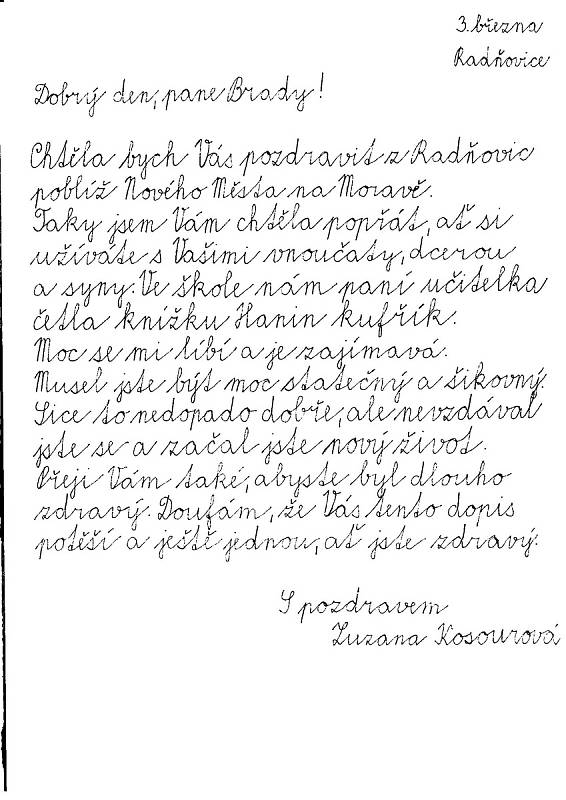 3. března
Radňovice
Dobrý den, pane Brady!
Chtěla bych Vás pozdravit z Radňovic
poblíž Nového Města na Moravě.
Taky jsem Vám chtěla popřát, ať si
užíváte s Vašimi vnoučaty, dcerou
a syny. Ve škole nám paní učitelka
četla knížku Hanin kufřík.
Moc se mi líbí a je zajímavá.
Musel jste být moc statečný a šikovný.
Sice to nedopado dobře, ale nevzdával
jste se a začal jste nový život.
Přeji Vám také, abyste byl dlouho
zdravý. Doufám, že Vás tento dopis
potěší a ještě jednou, ať jste zdravý.
S pozdravem
Zuzana Kosourová